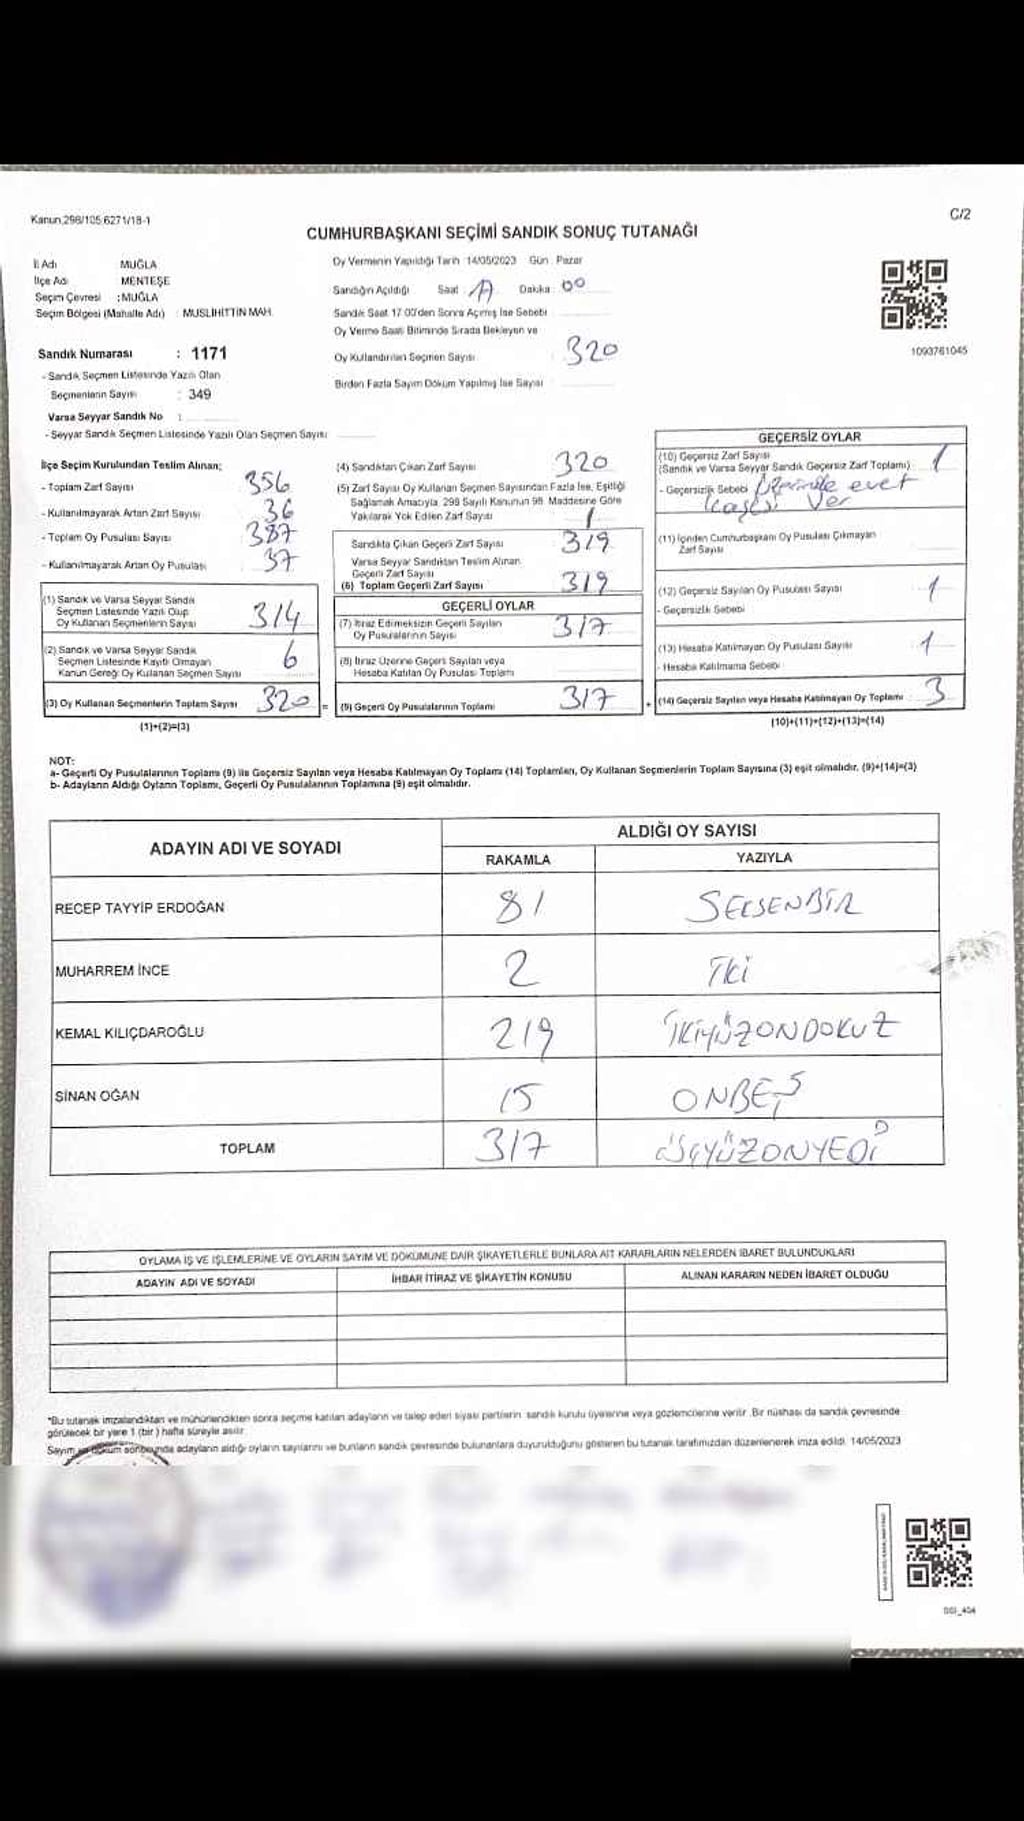 Kanun.298/105.6271/18-1
C/2
CUMHURBAŞKANI SEÇİMİ SANDIK SONUÇ TUTANAĞI
İl Adı MUĞLA
İlçe Adı MENTEŞE
Seçim Çevresi : MUĞLA
Seçim Bölgesi (Mahalle Adı) : MUSLİHİTTİN MAH.
Sandık Numarası : 1171
- Sandık Seçmen Listesinde Yazılı Olan
Seçmenlerin Sayısı : 349
Varsa Seyyar Sandık No :
- Seyyar Sandık Seçmen Listesinde Yazılı Olan Seçmen Sayısı
Oy Vermenin Yapıldığı Tarih : 14/05/2023 Gün : Pazar
Sandığın Açıldığı Saat : 17 Dakika : 00
Sandık Saat 17.00'den Sonra Açılmış İse Sebebi
Oy Verme Saati Bitiminde Sırada Bekleyen ve
Oy Kullandırılan Seçmen Sayısı : 320
Birden Fazla Sayım Döküm Yapılmış İse Sayısı :
1093761045
İlçe Seçim Kurulundan Teslim Alınan;
- Toplam Zarf Sayısı 356
- Kullanılmayarak Artan Zarf Sayısı 36
- Toplam Oy Pusulası Sayısı 387
- Kullanılmayarak Artan Oy Pusulası 37
(1) Sandık ve Varsa Seyyar Sandık
Seçmen Listesinde Yazılı Olup
Oy Kullanan Seçmenlerin Sayısı 314
(2) Sandık ve Varsa Seyyar Sandık
Seçmen Listesinde Kayıtlı Olmayan
Kanun Gereği Oy Kullanan Seçmen Sayısı 6
(3) Oy Kullanan Seçmenlerin Toplam Sayısı 320 =
(1)+(2)=(3)
(4) Sandıktan Çıkan Zarf Sayısı 320
(5) Zarf Sayısı Oy Kullanan Seçmen Sayısından Fazla İse, Eşitliği
Sağlamak Amacıyla, 298 Sayılı Kanunun 98. Maddesine Göre
Yakılarak Yok Edilen Zarf Sayısı 1
Sandıkta Çıkan Geçerli Zarf Sayısı 319
Varsa Seyyar Sandıktan Teslim Alınan
Geçerli Zarf Sayısı
(6) Toplam Geçerli Zarf Sayısı 319
GEÇERLİ OYLAR
(7) İtiraz Edilmeksizin Geçerli Sayılan
Oy Pusulalarının Sayısı 317
(8) İtiraz Üzerine Geçerli Sayılan veya
Hesaba Katılan Oy Pusulası Toplamı
(9) Geçerli Oy Pusulalarının Toplamı 317 +
GEÇERSİZ OYLAR
(10) Geçersiz Zarf Sayısı
(Sandık ve Varsa Seyyar Sandık Geçersiz Zarf Toplamı) 1
- Geçersizlik Sebebi Üzerinde evet
kaşesi Ver
(11) İçinden Cumhurbaşkanı Oy Pusulası Çıkmayan
Zarf Sayısı
(12) Geçersiz Sayılan Oy Pusulası Sayısı 1
- Geçersizlik Sebebi
(13) Hesaba Katılmayan Oy Pusulası Sayısı 1
- Hesaba Katılmama Sebebi
(14) Geçersiz Sayılan veya Hesaba Katılmayan Oy Toplamı 3
(10)+(11)+(12)+(13)=(14)
NOT:
a- Geçerli Oy Pusulalarının Toplamı (9) ile Geçersiz Sayılan veya Hesaba Katılmayan Oy Toplamı (14) Toplamları, Oy Kullanan Seçmenlerin Toplam Sayısına (3) eşit olmalıdır. (9)+(14)=(3)
b- Adayların Aldığı Oyların Toplamı, Geçerli Oy Pusulalarının Toplamına (9) eşit olmalıdır.
ADAYIN ADI VE SOYADI
ALDIĞI OY SAYISI
RAKAMLA YAZIYLA
RECEP TAYYİP ERDOĞAN 81 SEKSENBİR
MUHARREM İNCE 2 İKİ
KEMAL KILIÇDAROĞLU 219 İKİYÜZONDOKUZ
SİNAN OĞAN 15 ONBEŞ
TOPLAM 317 ÜÇYÜZONYEDİ
OYLAMA İŞ VE İŞLEMLERİNE VE OYLARIN SAYIM VE DÖKÜMÜNE DAİR ŞİKAYETLERLE BUNLARA AİT KARARLARIN NELERDEN İBARET BULUNDUKLARI
ADAYIN ADI VE SOYADI İHBAR İTİRAZ VE ŞİKAYETİN KONUSU ALINAN KARARIN NEDEN İBARET OLDUĞU
*Bu tutanak imzalandıktan ve mühürlendikten sonra seçime katılan adayların ve talep eden siyasi partilerin sandık kurulu üyelerine veya gözlemcilerine verilir. Bir nüshası da sandık çevresinde
görülecek bir yere 1 (bir) hafta süreyle asılır.
Sayım ve döküm sonucunda adayların aldığı oyların sayılarını ve bunların sandık çevresinde bulunanlara duyurulduğunu gösteren bu tutanak tarafımızdan düzenlenerek imza edildi. 14/05/2023